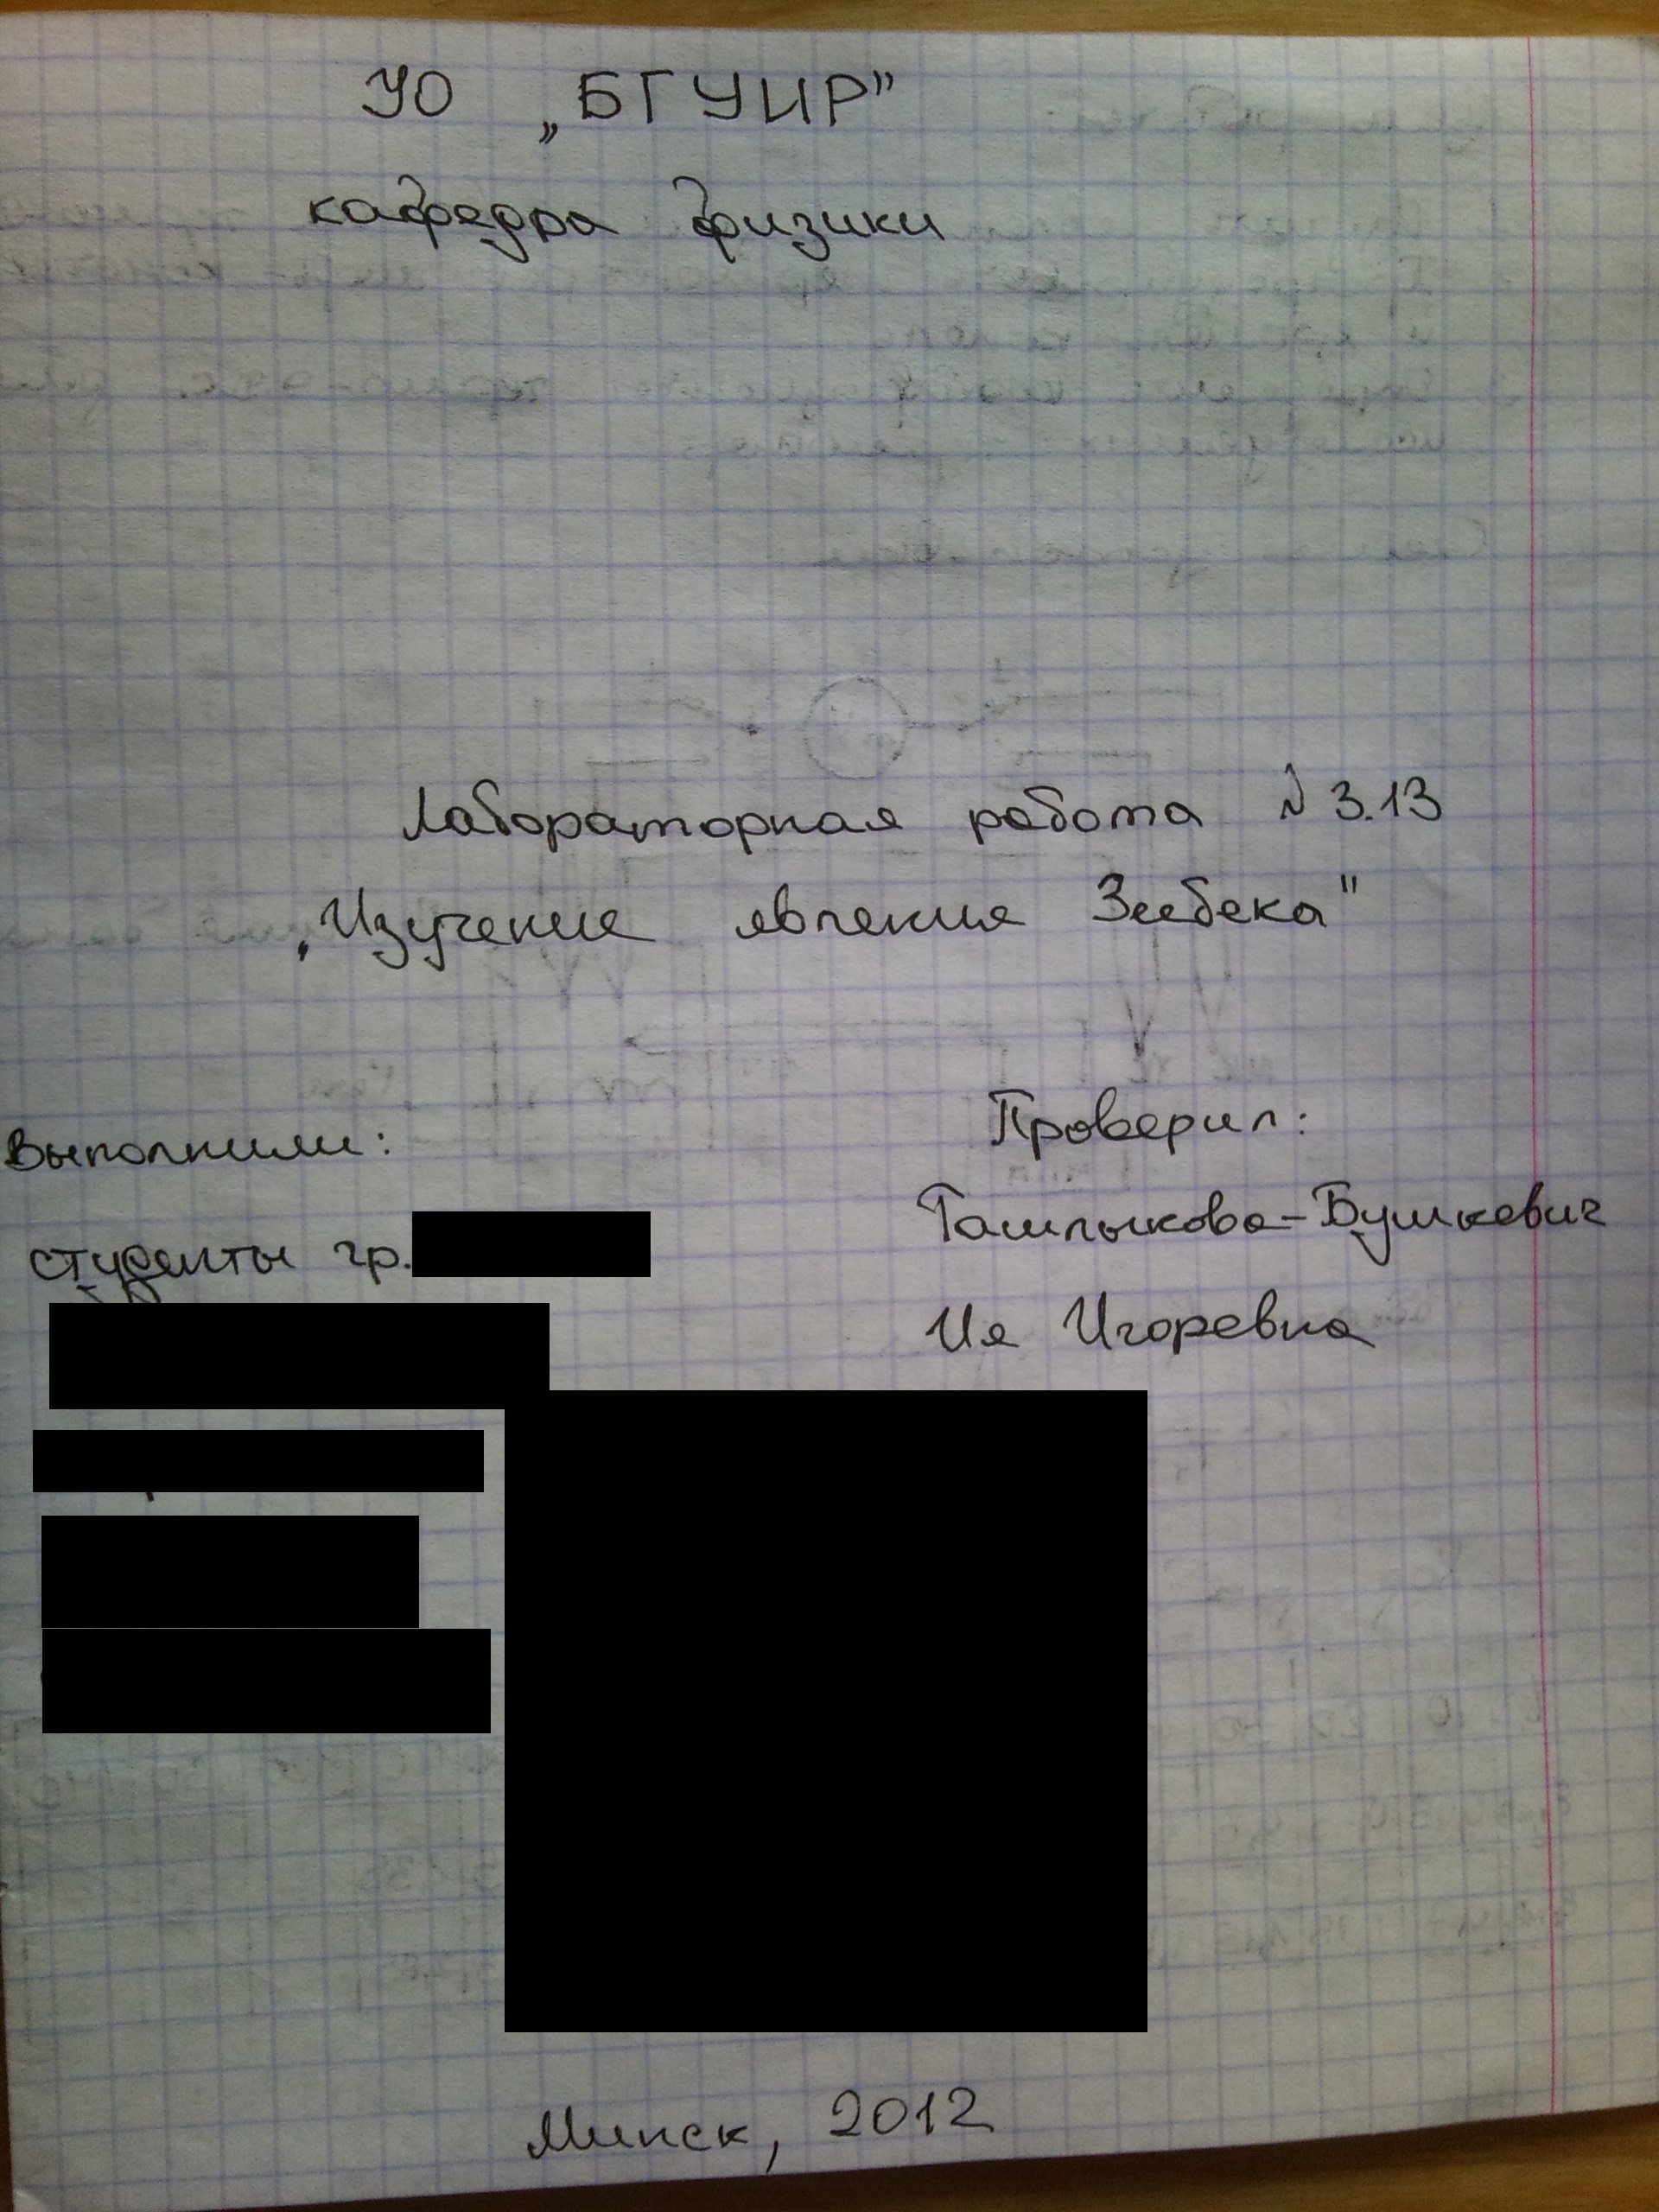 УО „БГУИР”
кафедра физики
Лабораторная работа №3.13
„Изучение явления Зеебека"
Выполнили:
студенты гр.
Проверил:
Ташлыкова-Бушкевич
Ия Игоревна
Минск, 2012